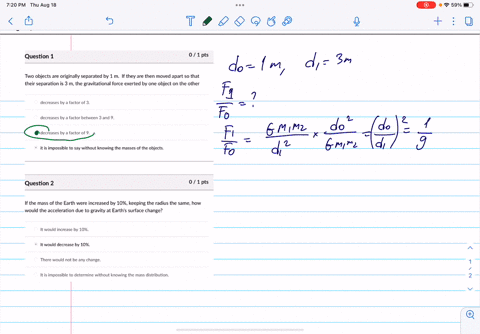 7:20 PM Thu Aug 18
59%
Question 1
0 / 1 pts
Two objects are originally separated by 1 m. If they are then moved apart so that
their separation is 3 m, the gravitational force exerted by one object on the other
decreases by a factor of 3.
decreases by a factor between 3 and 9.
decreases by a factor of 9.
it is impossible to say without knowing the masses of the objects.
d0 = 1m, d1 = 3m
Fg/F0 = ?
F1/F0 = G M1M2/d1² × d0²/G M1M2 = (d0/d1)² = 1/9
Question 2
0 / 1 pts
If the mass of the Earth were increased by 10%, keeping the radius the same, how
would the acceleration due to gravity at Earth's surface change?
It would increase by 10%.
It would decrease by 10%.
There would not be any change.
It is impossible to determine without knowing the mass distribution.
1
2